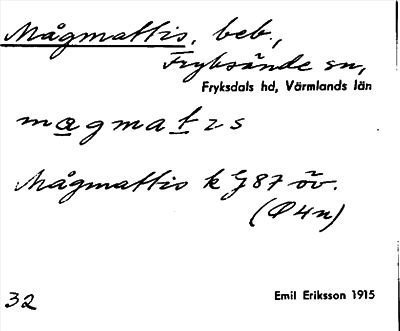 Mågmattis, beb.,
Fryksände sn,
Fryksdals hd, Värmlands län
magmatis
Mågmattis k G 87 öv.
(Ø4n)
32
Emil Eriksson 1915